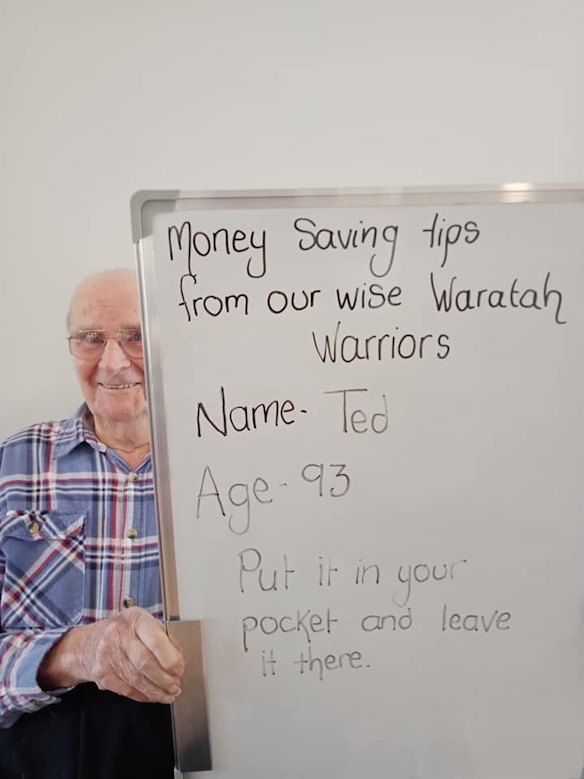 Money Saving tips
from our wise Waratah
Warriors
Name- Ted
Age- 93
Put it in your
pocket and leave
it there.